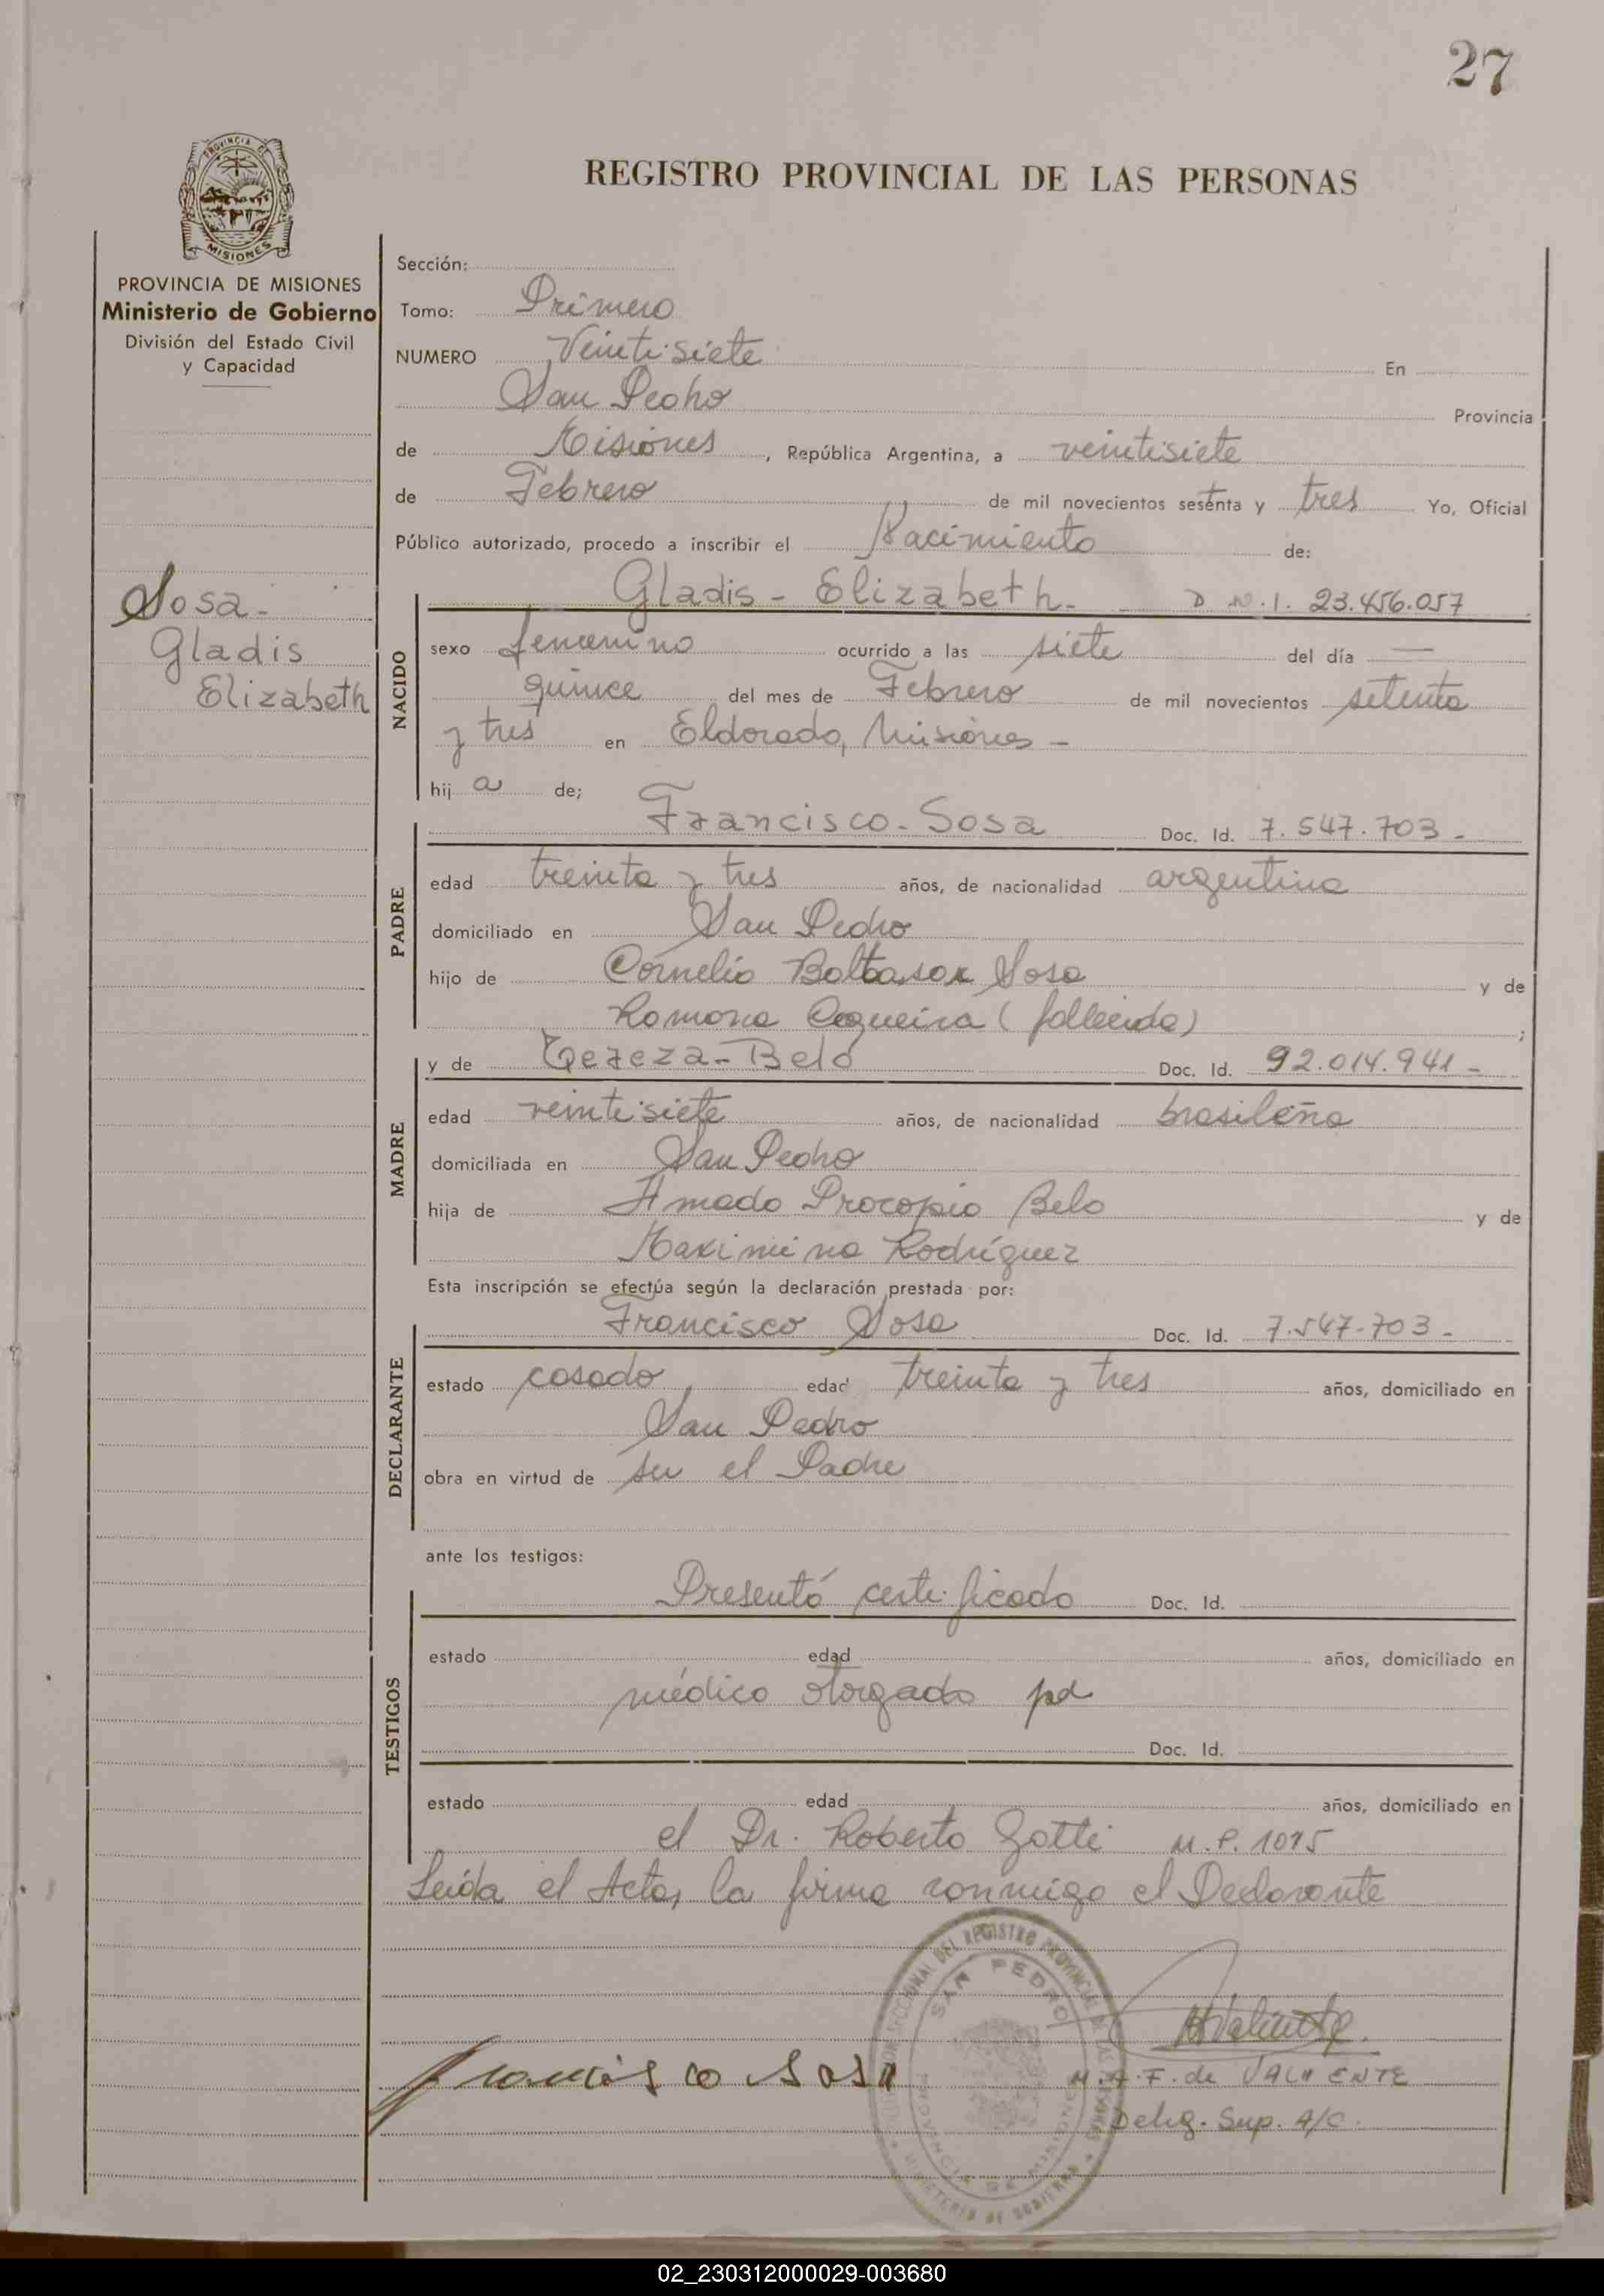 27
REGISTRO PROVINCIAL DE LAS PERSONAS
PROVINCIA DE MISIONES
Ministerio de Gobierno
División del Estado Civil
y Capacidad
Sosa-
Gladis
Elizabeth
Sección:
Tomo: Primero
NUMERO Veintisiete En
San Pedro Provincia
de Misiones, República Argentina, a veintisiete
de Febrero de mil novecientos sesenta y tres Yo, Oficial
Público autorizado, procedo a inscribir el Nacimiento de:
NACIDO
Gladis - Elizabeth. D.N.I. 23.456.057
sexo femenino ocurrido a las siete del día —
quince del mes de Febrero de mil novecientos setenta
y tres en Eldorado, Misiones -
hij a de;
PADRE
Francisco - Sosa Doc. Id. 7.547.703 -
edad treinta y tres años, de nacionalidad argentina
domiciliado en San Pedro
hijo de Cornelio Baltasar Sosa y de
Ramona (fallecida);
MADRE
y de Tereza - Beló Doc. Id. 92.014.941 -
edad veintisiete años, de nacionalidad brasileña
domiciliada en San Pedro
hija de Amado Procopio Belo y de
Maximina Rodríguez
Esta inscripción se efectúa según la declaración prestada por:
DECLARANTE
Francisco Sosa Doc. Id. 7.547.703 -
estado casado, edad treinta y tres años, domiciliado en
San Pedro
obra en virtud de ser el Padre
ante los testigos:
TESTIGOS
Presentó certificado Doc. Id.
estado edad años, domiciliado en
médico otorgado
Doc. Id.
estado edad años, domiciliado en
el Dr. Roberto Gotti M.P. 1015
Leída el Acta, la firma conmigo el Declarante
Francisco Sosa
M.A.F. de VALIENTE
Deleg. Sup. A/C.
SAN PEDRO
PROVINCIA DE MISIONES
MINISTERIO DE GOBIERNO
02_230312000029-003680